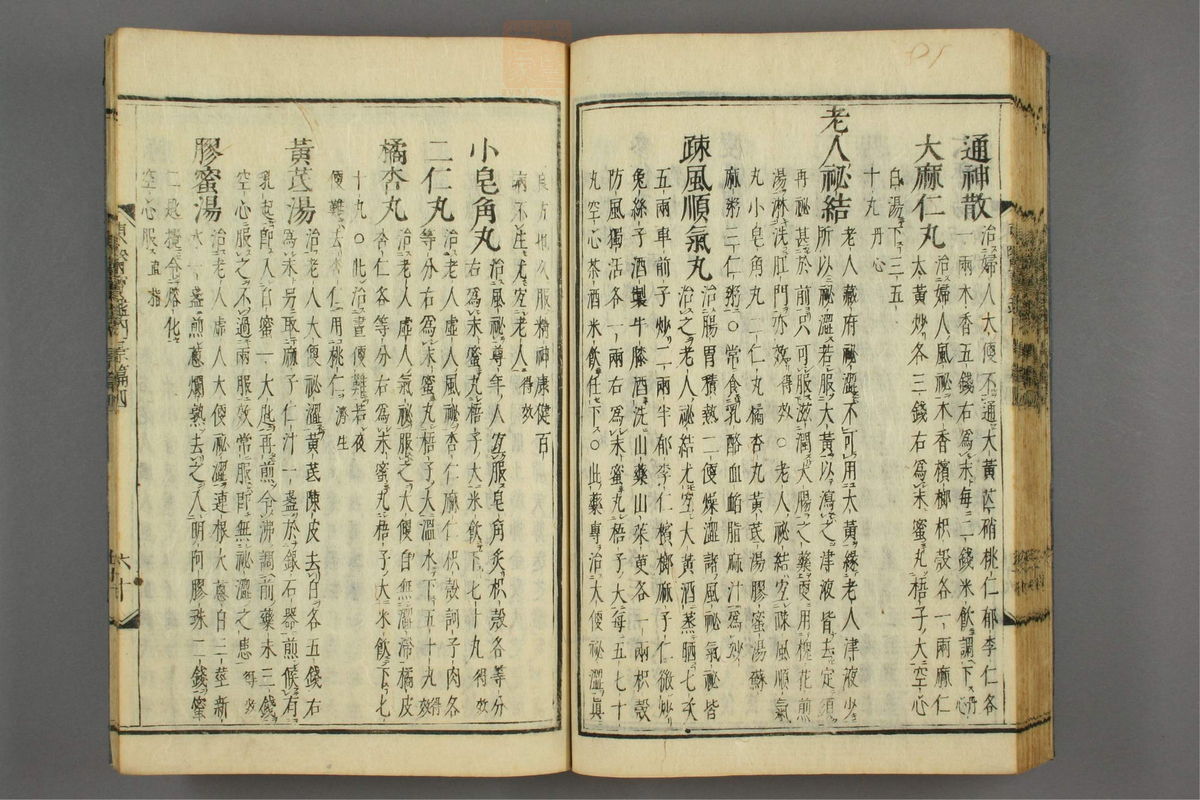 通神散 治婦人大便不通大黃芒硝桃仁郁李仁各
一兩木香五錢右爲末每二錢米飲調下丹心
大麻仁丸 治婦人風祕木香檳榔枳殼各一兩麻仁
大黃炒各三錢右爲末蜜丸梧子大空心
白湯下三五
十丸丹心
老人祕結 老人藏府祕澁不可用大黃緣老人津液少
所以祕澁若服大黃以瀉之津液皆去定須
再祕甚於前只可服滋潤大腸之藥更用槐花煎
湯淋洗肛門亦效得效○老人祕結宜疎風順氣
丸小皂角丸二仁丸橘杏丸黃芪湯膠蜜湯蘇
麻粥三仁粥○常食乳酪血䘓脂麻汁爲妙
疎風順氣丸 治腸胃積熱二便燥澁諸風祕氣祕皆
治之老人祕結尤宜大黃酒蒸晒七次
五兩車前子炒二兩半郁李仁檳榔麻子仁微炒
兔絲子酒製牛膝酒洗山藥山茱萸各二兩枳殼
防風獨活各一兩右爲末蜜丸梧子大每五七十
丸空心茶酒米飲任下○此藥專治大便祕澁眞
良方也久服精神康健百
病不生尤宜老人得效
小皂角丸 治風祕尊年人宜服皂角炙枳殼各等分
右爲末蜜丸梧子大米飲下七十丸得效
二仁丸 治老人虛人風祕杏仁麻仁枳殼訶子肉各
等分右爲末蜜丸梧子大溫水下五十丸得效
橘杏丸 治老人虛人氣祕服之大便自無澁滯橘皮
杏仁各等分右爲末蜜丸梧子大米飲下七
十丸○此治晝便難若夜
便難去杏仁用桃仁濟生
黃芪湯 治老人大便祕澁黃芪陳皮去白各五錢右
爲末另取麻子仁汁一盞於銀石器煎候有
乳起卽入白蜜一大匙再煎令沸調前藥末三錢
空心服之不過兩服效常服卽無祕澁之患得效
膠蜜湯 治老人虛人大便祕澁連根大葱白三莖新
水一盞煎葱爛熟去之入明阿膠珠二錢蜜
二匙攪令熔化
空心服直指